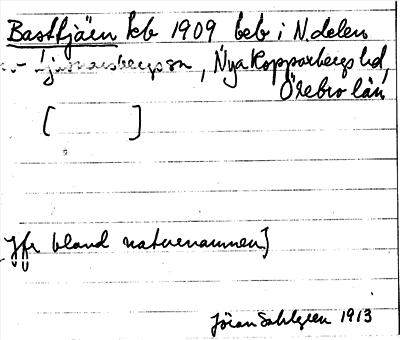 Basttjäen kb 1909 beb i N delen
av Ljusnarsbergs sn, Nya Kopparbergs hd,
Örebro län
[ ]
Jfr bland naturnamnen]
Jöran Sahlgren 1913